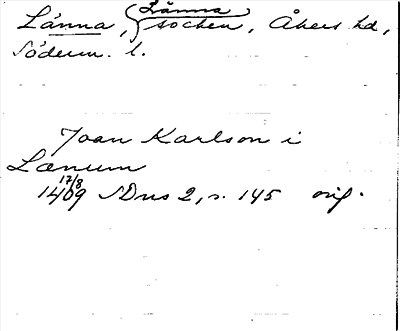 Länna, (Länna socken, Åkers hd,
Söderm. l.
Joan Karlson i
Lænum
17/8
1409 SDns 2, s. 145 orig.